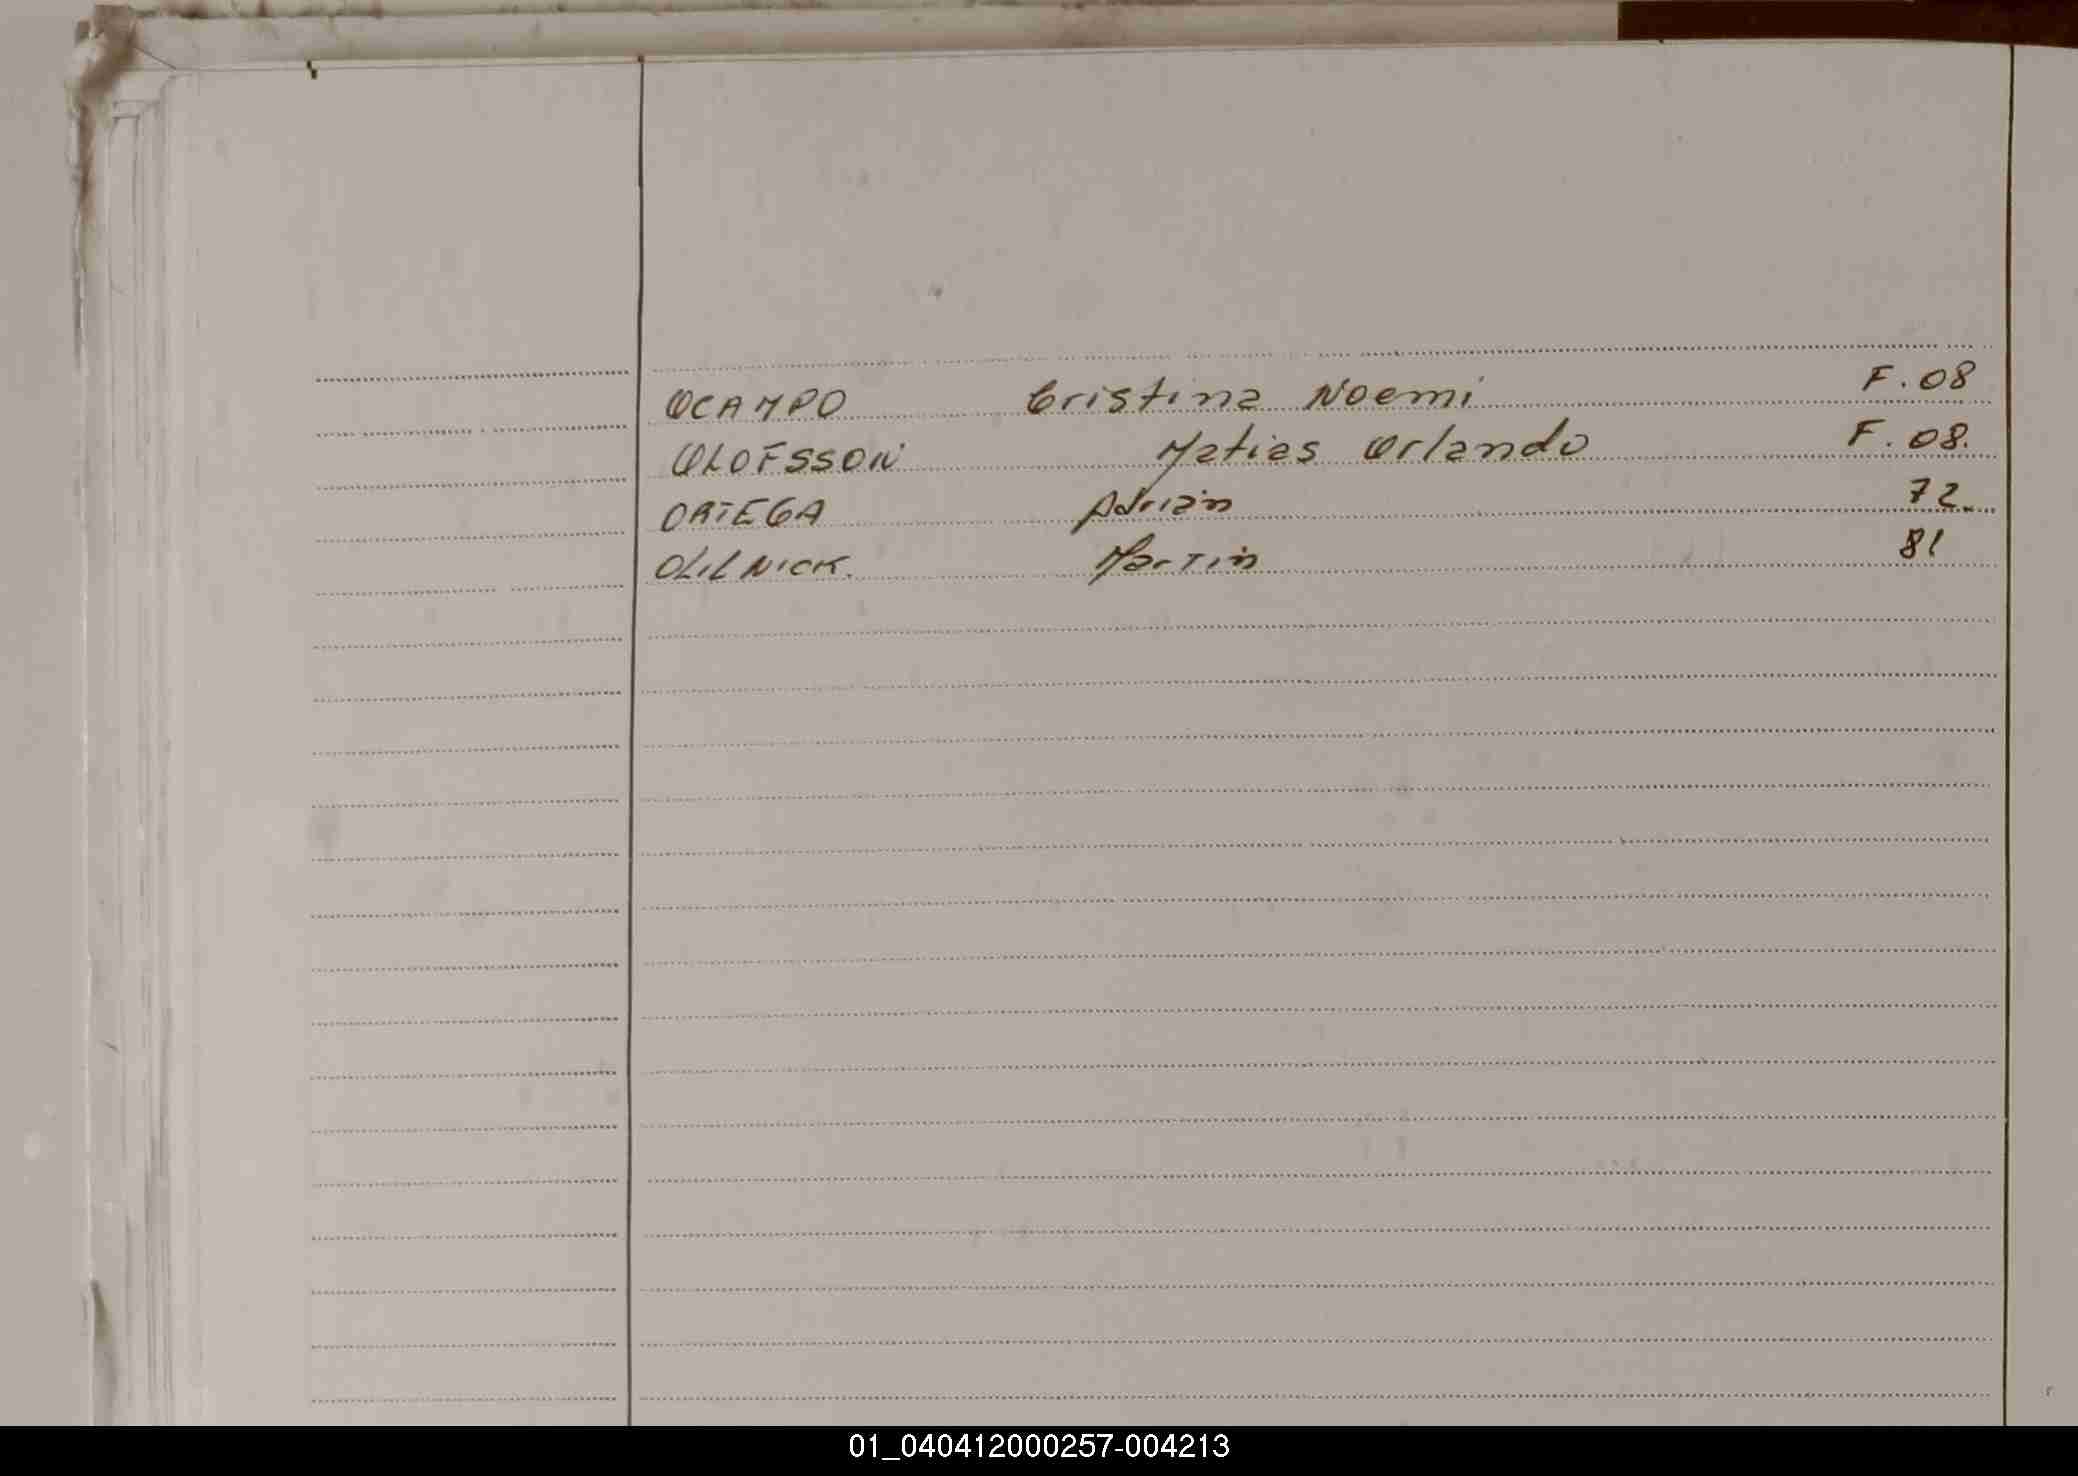 OCAMPO Cristina Noemi F. 08
OLOFSSON Matias Orlando F. 08.
ORTEGA Adrián 72.
OLILNICK. Martin 81
01_040412000257-004213